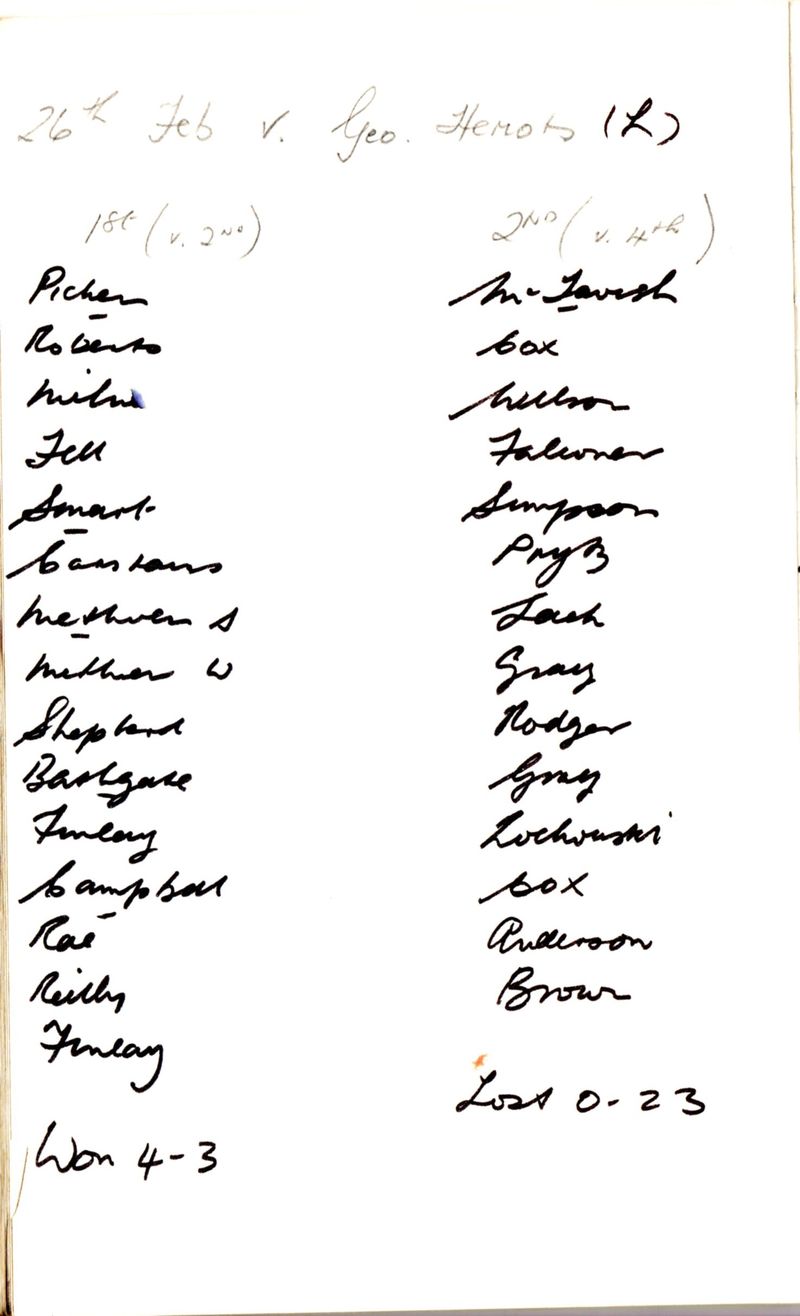 26th Feb v. Geo. Heriots (L)
1st (v. 2ND)
Picken
Roberts
Milne
Fell
Smart
Carstairs
Methven S
Methven W
Shepherd
Bathgate
Finlay
Campbell
Rae
Reilly
Finlay
Won 4-3
2ND (v. 4th)
McTavish
Cox
Willson
Falconer
Simpson
Pry B
Gray
Rodger
Gray
Lochowski
Cox
Anderson
Brown
Lost 0-23